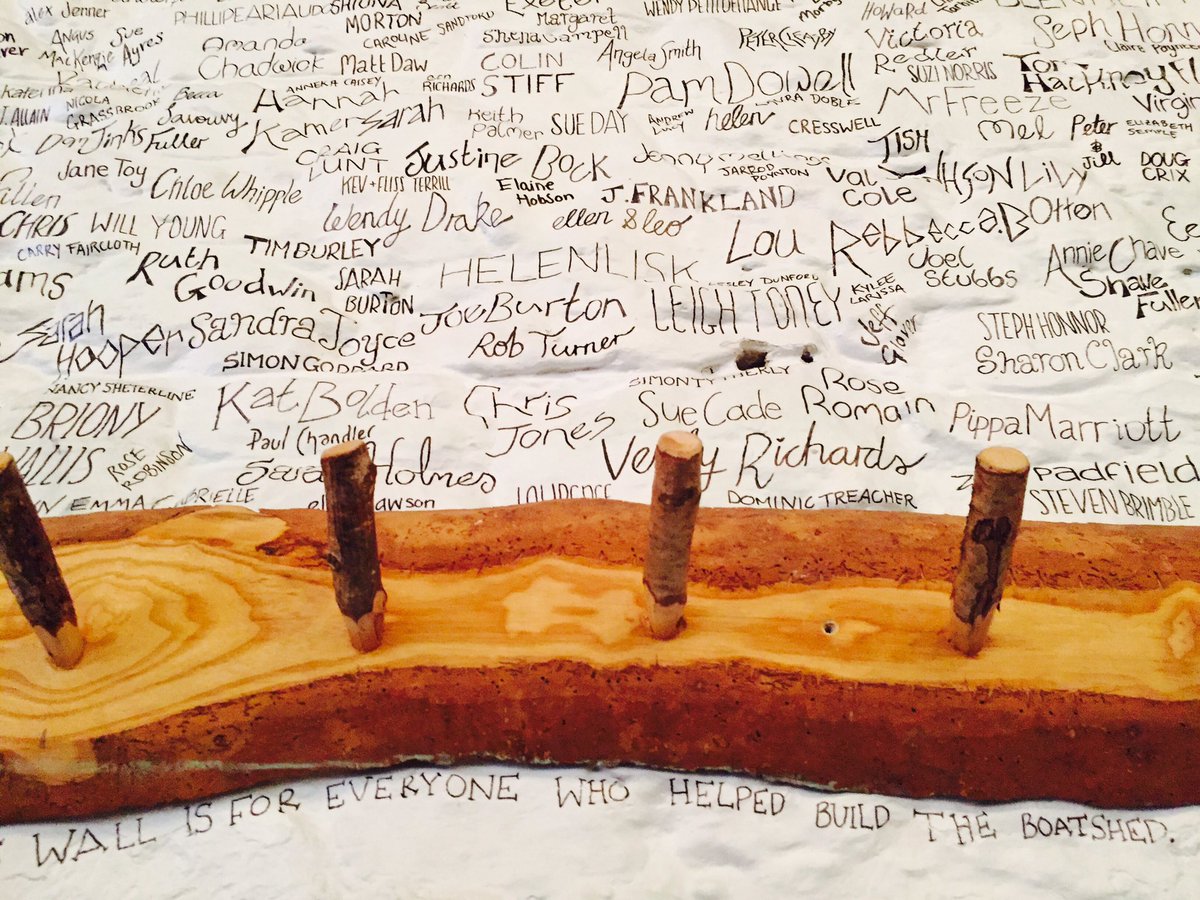 alex Jenner
PHILLIPE ARIAUDO
SHIONA
MORTON
Exeter
Margaret
WENDY PETITDEMANGE
HOWARD
Victoria
Seph Honn
Claire Poynton
ANGUS
Mackenzie
Sue
Ayres
Amanda
Chadwick
CAROLINE SANDFORD
Matt Daw
COLIN
STIFF
Angela Smith
PETER CLEASBY
SUZI NORRIS
Tor
Hackney
ANNEKA CAISEY
RICHARDS
Pam Dowell
LAURA DOBLE
Mr Freeze
Virgin
J. ALLAIN
NICOLA
GRASSBROOK
Becca
Hannah
Kamer
Sarah
Keith
Palmer
SUE DAY
ANDREW
Lucy
helen
CRESSWELL
TISH
Mel
Peter
&
Jill
ELIZABETH
SEMPLE
Dan Jinks
Fuller
CRAIG
LUNT
Justine
Bock
JARROD
POYNTON
Val
COLE
Lily
DOUG
CRIX
Jane Toy
Chloe Whipple
KEV + FLISS TERRILL
Elaine
Hobson
J. FRANKLAND
CHRIS
WILL YOUNG
Wendy Drake
ellen
Sleo
Lou
Rebbecca. B
Otton
CARRY FAIRCLOTH
TIM BURLEY
Ruth
Goodwin
SARAH
BURTON
HELEN LISK
LESLEY DUNFORD
Joel
Stubbs
Annie Chave
Shave
Fuller
Sarah
Hooper
Sandra Joyce
Joe Burton
LEIGH TONEY
KYLEE
LARISSA
Jeff
Glover
STEPH HONNOR
SIMON GODDARD
Rob Turner
Sharon Clark
NANCY SHETERLINE
BRIONY
WALLIS
Kat Bolden
Chris
Jones
SIMON TYTHERLY
Sue Cade
Rose
Romain
Pippa Marriott
ROSE
ROBINSON
Paul Chandler
Holmes
Richards
Padfield
EMMA
LAURENCE
DOMINIC TREACHER
STEVEN BRIMBLE
WALL IS FOR EVERYONE WHO HELPED BUILD THE BOATSHED.